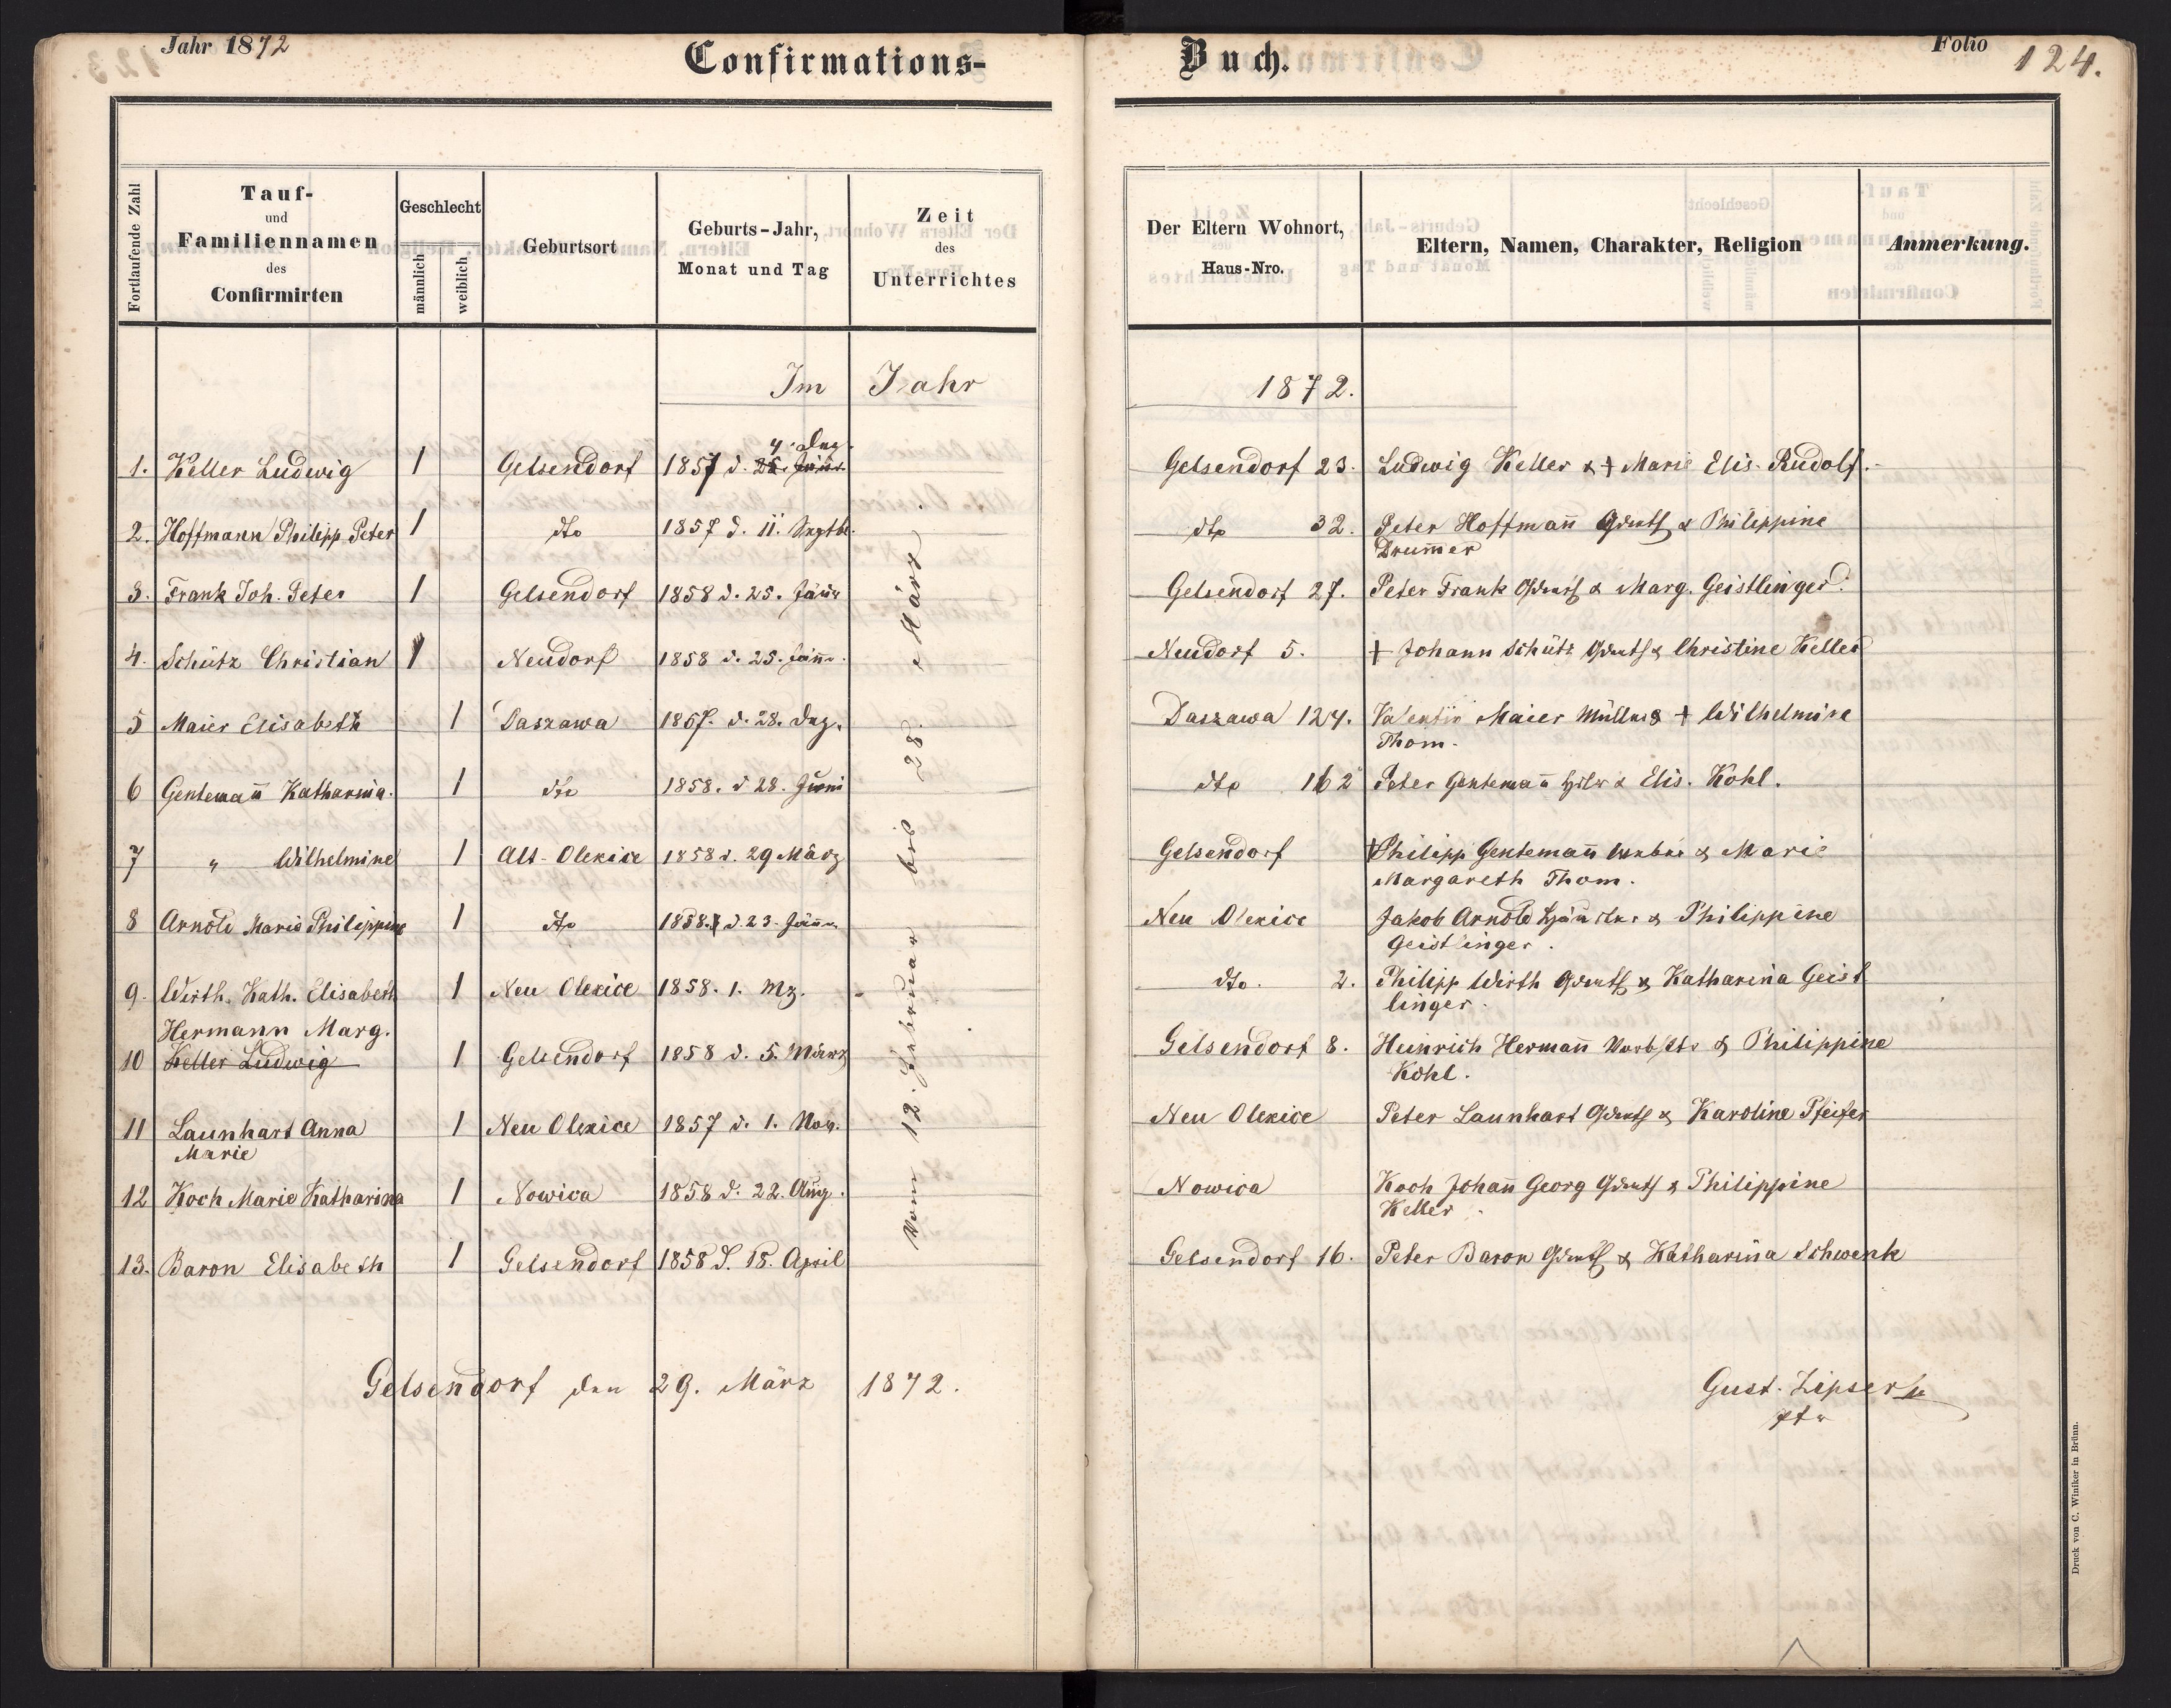 Jahr 1872
Confirmations-
Buch.
Folio 124.
Fortlaufende Zahl
Tauf-
und
Familiennamen
des
Confirmirten
Geschlecht
männlich
weiblich
Geburtsort
Geburts-Jahr,
Monat und Tag
Zeit
des
Unterrichtes
Der Eltern Wohnort,
Haus-Nro.
Eltern, Namen, Charakter, Religion
Anmerkung.
Im Jahr 1872.
4. Dez.
1. Keller Ludwig 1 Gelsendorf 1857 d. Gelsendorf 23. Ludwig Keller & + Marie Elis. Rudolf.
2. Hoffmann Philipp Peter 1 dto 1857 d. 11. Septbr. dto 32. Peter Hoffmañ Grdwth & Philippine
Drum̃er
3. Frank Joh. Peter 1 Gelsendorf 1858 d. 25. Jänn Gelsendorf 27. Peter Frank Grdwth & Marg. Geistlinger.
4. Schütz Christian 1 Neudorf 1858 d. 25. Jänn. Neudorf 5. + Johann Schütz Grdwth & Christine Keller
5 Maier Elisabeth 1 Daszawa 1857. d. 28. Dez. Daszawa 124. Valentin Maier Müller & + Wilhelmine
Thom.
6 Gentemañ Katharina. 1 dto 1858. d 28. Juni dto 162 Peter Gentemañ & Elis. Kohl.
7 " Wilhelmine 1 Alt-Olexice 1858 d. 29 März Gelsendorf + Philipp Gentemañ & Marie
Margareth Thom.
8 Arnold Marie Philippine 1 dto 1858. d. 23. Jänn. Neu Olexice Jakob Arnold & Philippine
Geistlinger.
9. Wirth. Kath. Elisabeth 1 Neu Olexice 1858. 1. Mz. dto. 2. Philipp Wirth Grdwth & Katharina Geist
linger.
Hermann Marg.
10 Keller Ludwig 1 Gelsendorf 1858 d. 5. März Gelsendorf 8. Heinrich Hermañ & Philippine
Kohl.
11 Launhart Anna 1 Neu Olexice 1857 d. 1. Nov. Neu Olexice Peter Launhart Grdwth & Karoline Pfeifer
Marie
12 Koch Marie Katharina 1 Nowica 1858 d. 22. Aug. Nowica Koch Johañ Georg Grdwth & Philippine
Keller
13. Baron Elisabeth 1 Gelsendorf 1858 d. 18. April Gelsendorf 16. Peter Baron Grdwth & Katharina Schwenk
Vom 12. Februar bis 28. März.
Gelsendorf den 29. März 1872.
Gust. Lipser
Druck von C. Winiker in Brünn.